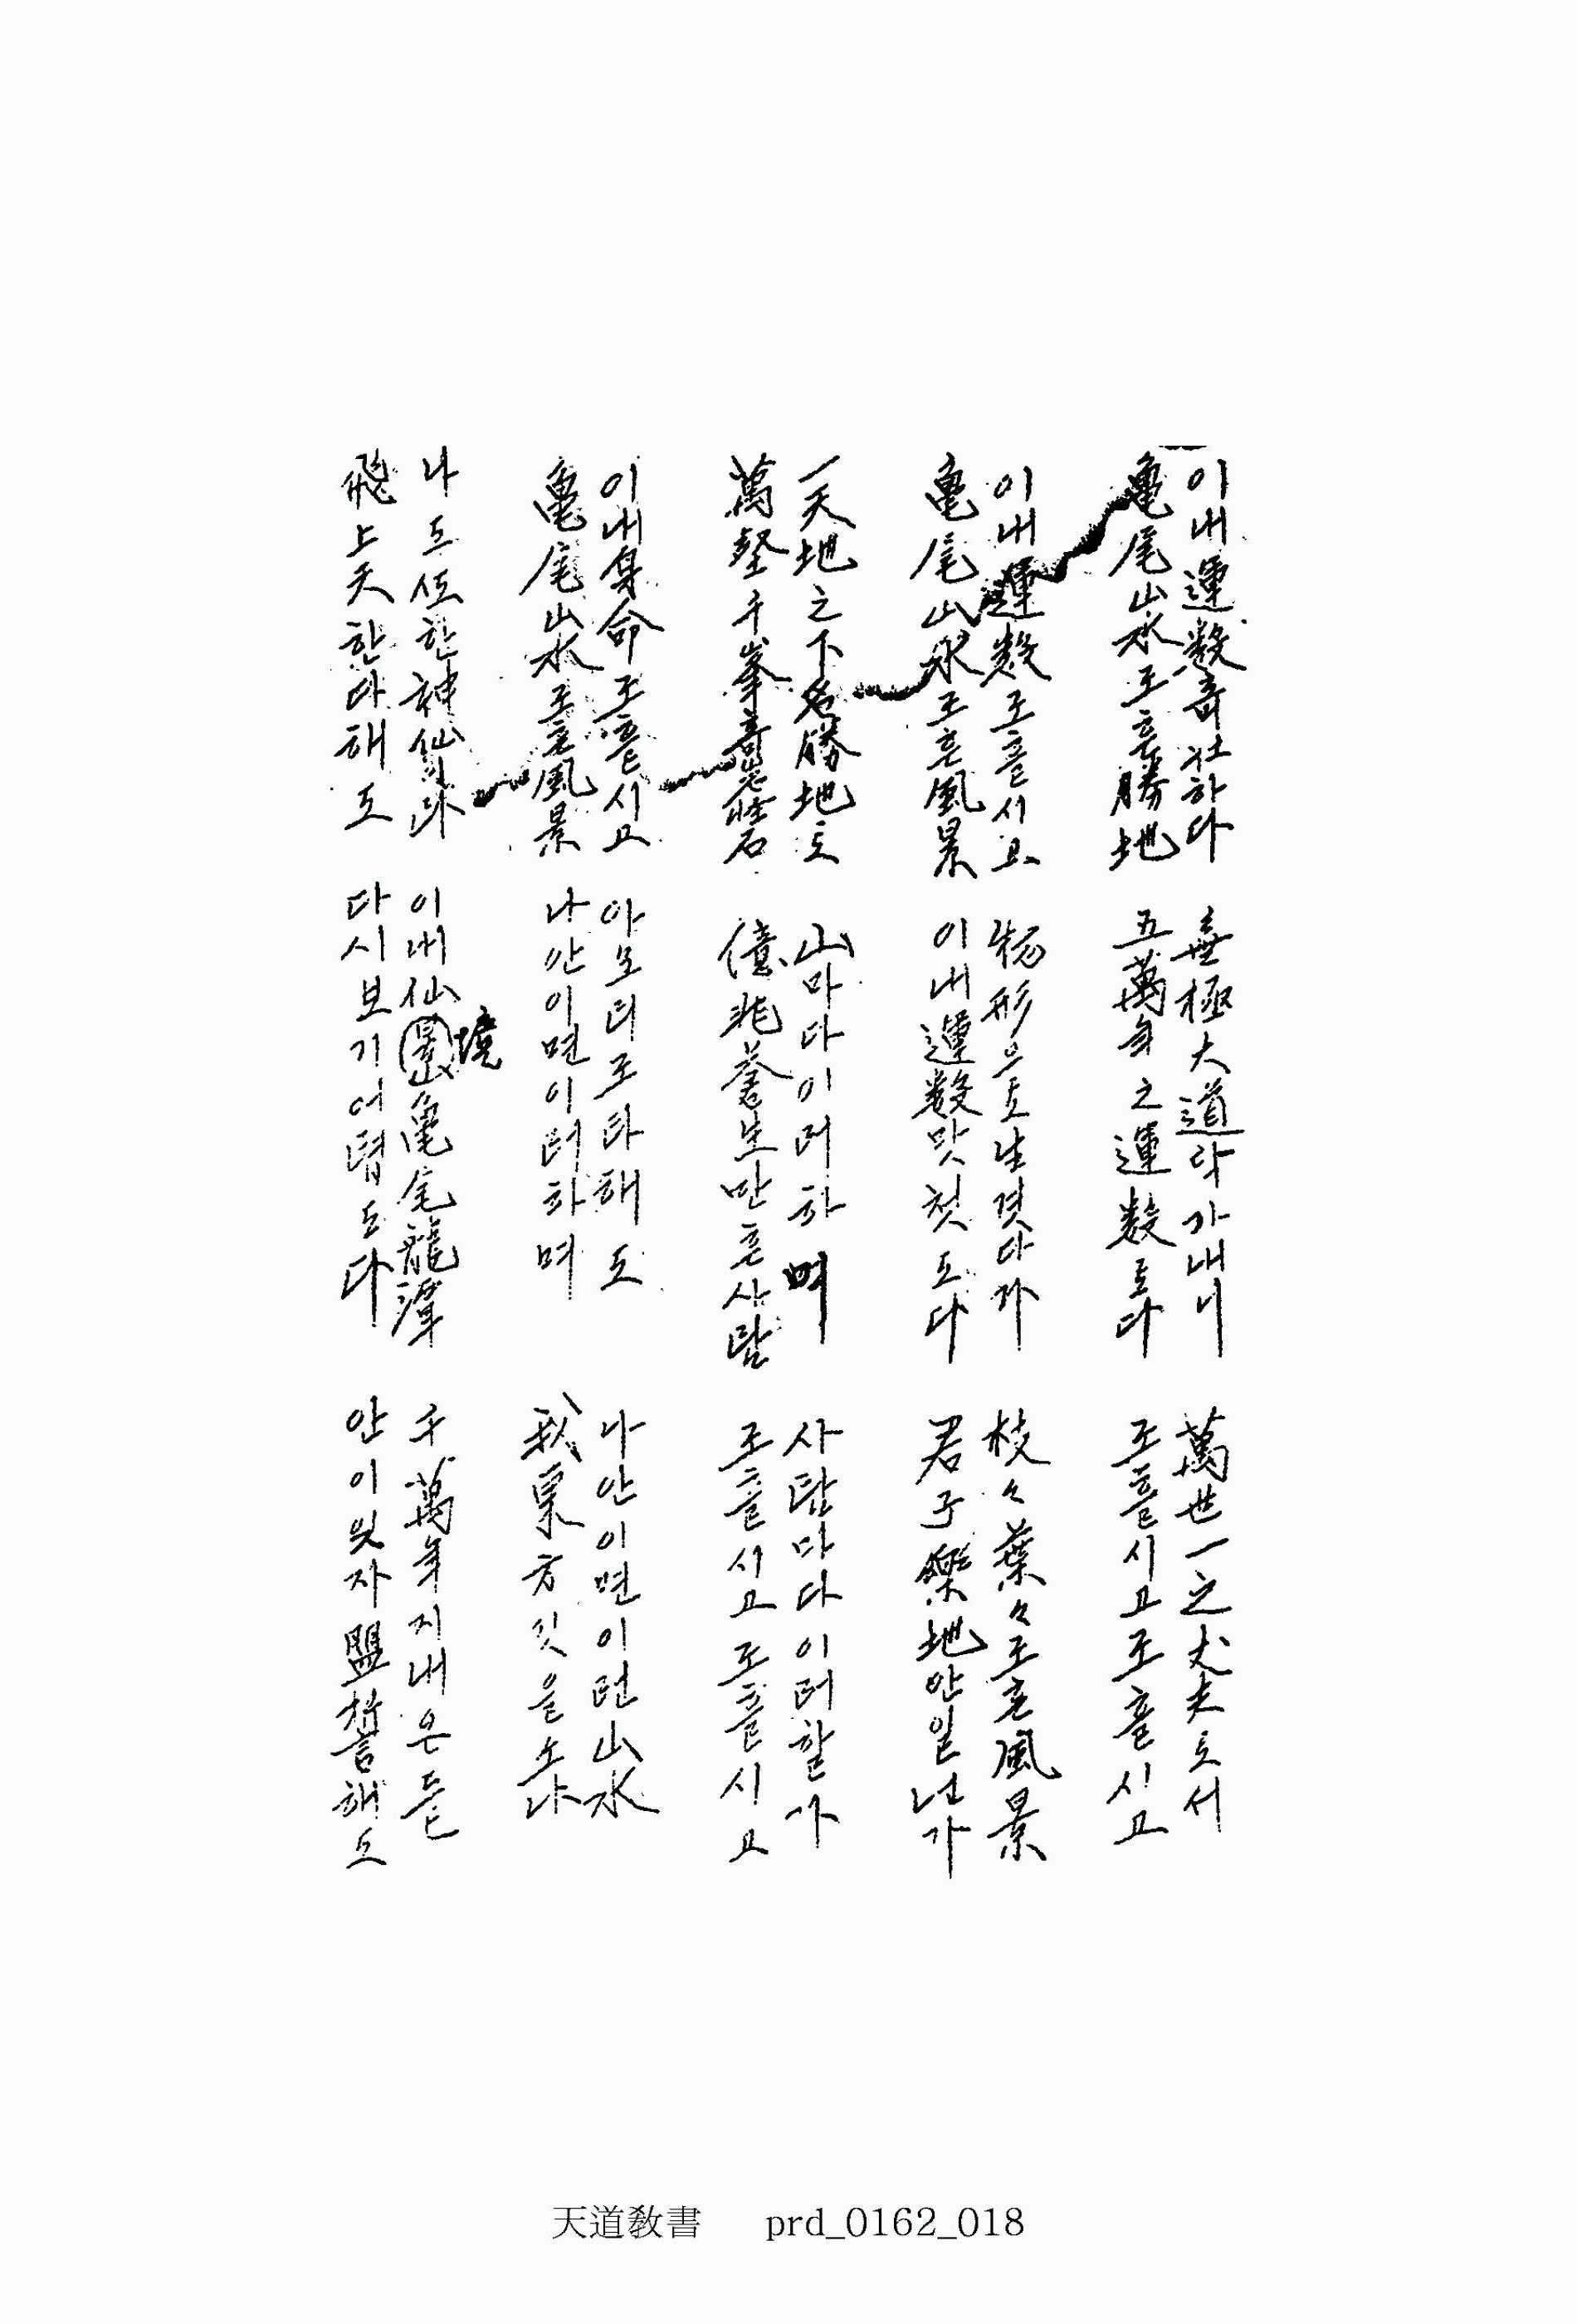 이내運数奇壮하다
亀尾山水조흔勝地
無極大道닥가내니
五萬年之運数로다
萬世一之丈夫로서
조흘시고조흘시고
이내運数조흘시고
亀尾山水조흔風景
物形으로생겻다가
이내運数맛첫도다
枝々葉々조흔風景
君子樂地안일넌가
一天地之下名勝地로
萬壑千峯奇岩怪石
山마다이러하며
億兆蒼生만흔사람
사람마다이러할가
조흘시고조흘시고
이내身命조흘시고
亀尾山水조흔風景
아모리조타해도
나안이면이러하며
나안이면이런山水
我東方깃을소냐
나도또한神仙이라
飛上天한다해도
이내仙境亀尾龍潭
다시보기어렵도다
千萬年지내온들
안이잇자盟誓해도
天道敎書 prd_0162_018